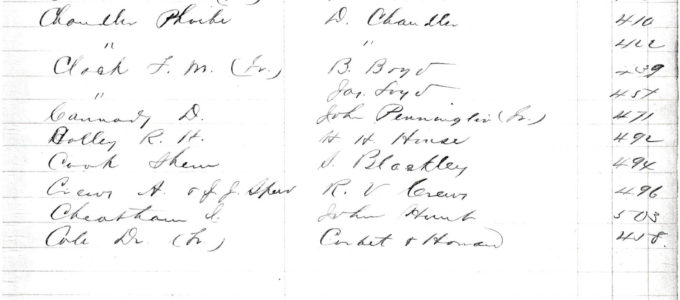 Chandler Phoebe D. Chandler 410
" " 422
Clark F. M. (Tr.) B. Boyd 439
" Jas. Loyd 457
Cannady D. John Pennington (Tr.) 471
Holley R. H. H. H. House 492
Cook Shem S. Blackley 494
Crews A. & J. J. Speed R. V. Crews 496
Cheatham I. John Hunt 503
Cole Dr. (Tr.) Corbet & 458.